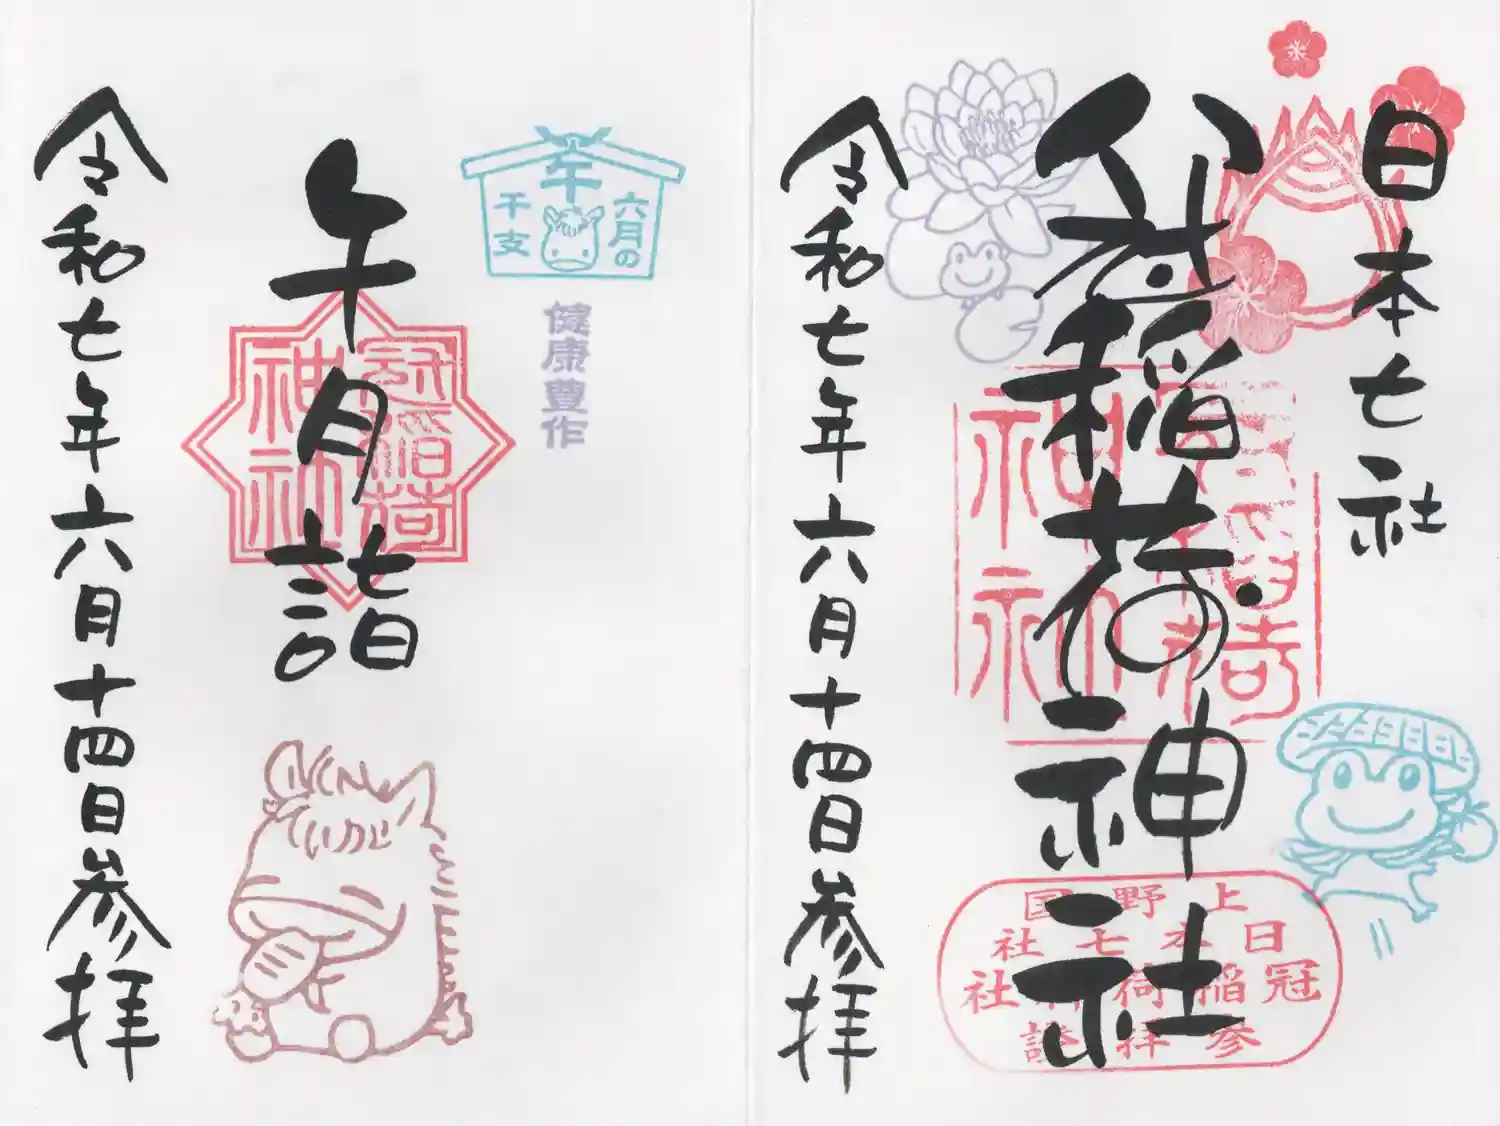 日本七社
冠稲荷神社
令和七年六月十四日参拝
冠稲荷神社
上野国
日本七社
冠稲荷神社
参拝證
六月の
午
干支
健康豊作
午月詣
冠稲荷神社
令和七年六月十四日参拝